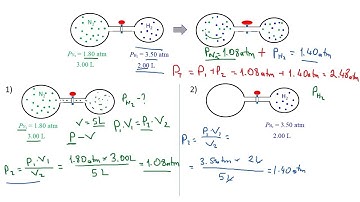 N₂ H₂
P_N₂ = 1.80 atm P_H₂ = 3.50 atm
3.00 L 2.00 L
P_N₂ = 1.08 atm + P_H₂ = 1.40 atm
P_T = P₁ + P₂ = 1.08 atm + 1.40 atm = 2.48 atm
1)
N₂
P_H₂ - ?
P_N₂ = 1.80 atm
3.00 L
V = 5L
P - V
P₁·V₁ = P₂·V₂
P₂ = P₁·V₁ / V₂ = 1.80 atm × 3.00L / 5L = 1.08 atm
2)
P_H₂
P_N₂ = 3.50 atm
2.00 L
P₂ = P₁·V₁ / V₂ =
= 3.50 atm × 2L / 5L = 1.40 atm